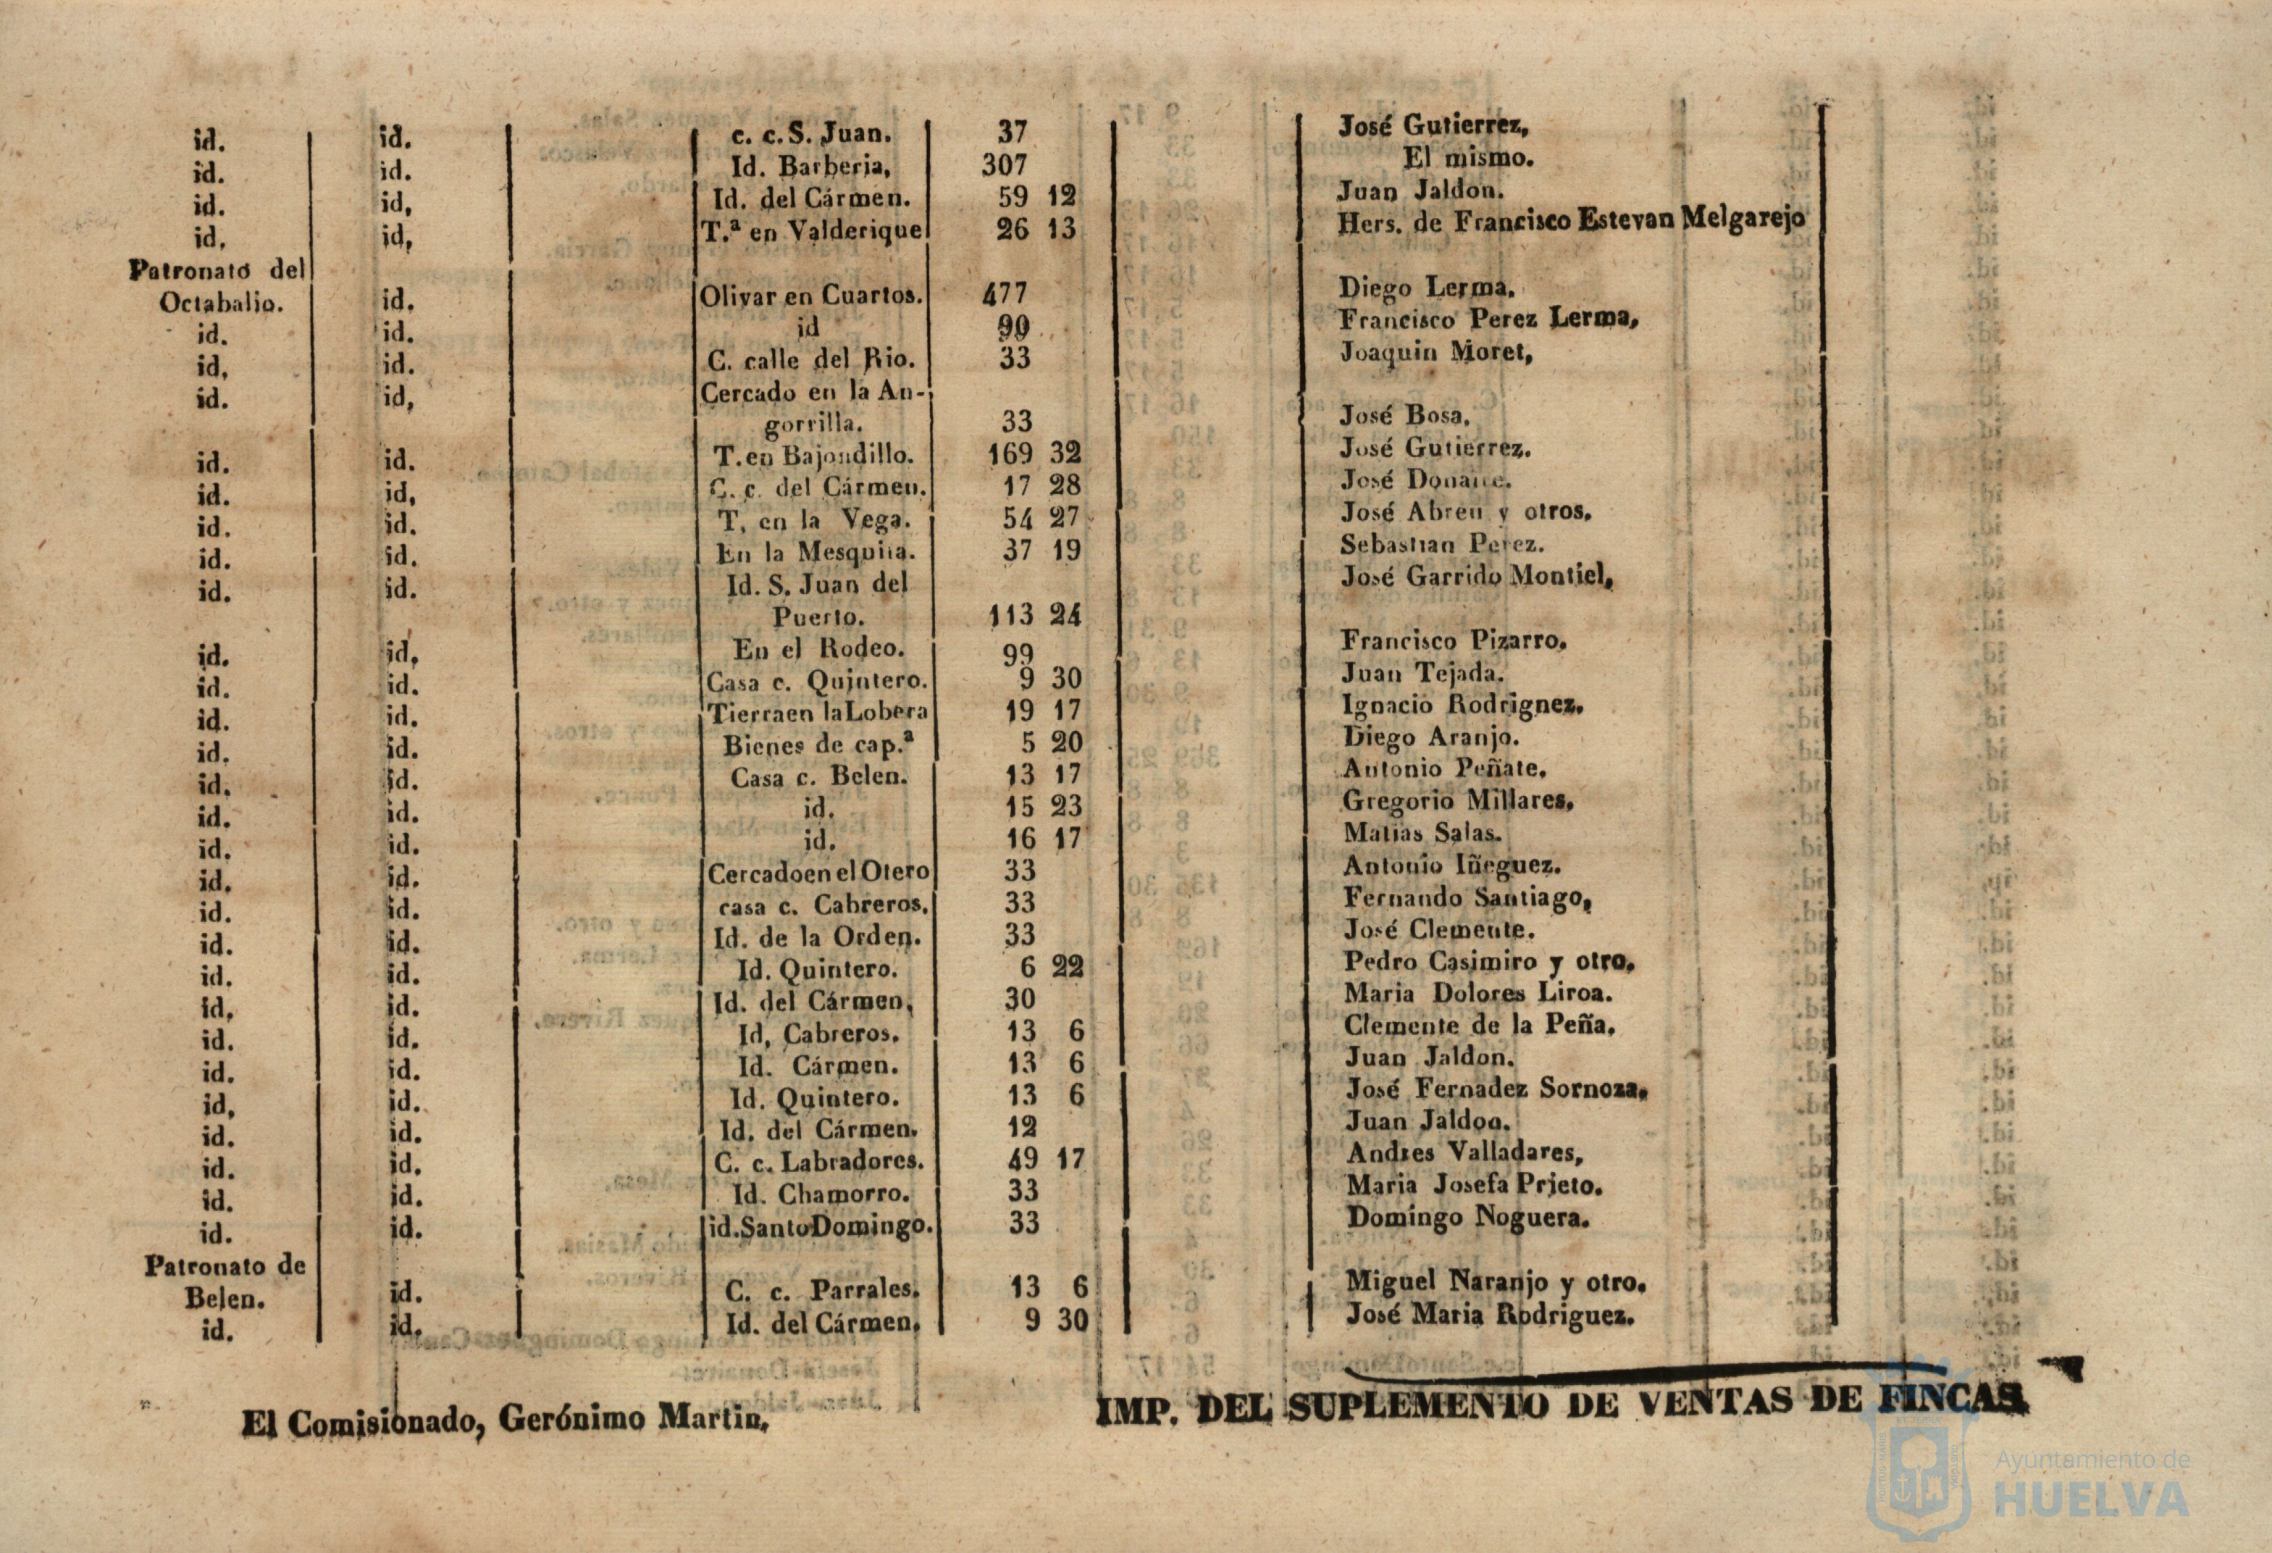 id. id. c. c. S. Juan. 37 José Gutierrez,
id. id. Id. Barberia, 307 El mismo.
id. id, Id. del Cármen. 59 12 Juan Jaldon.
id. id, T.ª en Valderique 26 13 Hers. de Francisco Estevan Melgarejo
Patronato del
Octabalio. id. Olivar en Cuartos. 477 Diego Lerma.
id. id. id 90 Francisco Perez Lerma,
id. id. C. calle del Rio. 33 Joaquin Moret,
id. id, Cercado en la An-
gorrilla. 33 José Bosa.
id. id. T. en Bajondillo. 169 32 José Gutierrez.
id. id, C. c. del Cármen. 17 28 José Donaire.
id. id. T. en la Vega. 54 27 José Abreu y otros.
id. id. En la Mesquita. 37 19 Sebastian Perez.
id. id. Id. S. Juan del José Garrido Montiel,
Puerto. 113 24
id. id, En el Rodeo. 99 Francisco Pizarro.
id. id. Casa c. Quintero. 9 30 Juan Tejada.
id. id. Tierra en la Lobera 19 17 Ignacio Rodrignez.
id. id. Bienes de cap.ª 5 20 Diego Aranjo.
id. id. Casa c. Belen. 13 17 Antonio Peñate.
id. id. id. 15 23 Gregorio Millares,
id. id. id. 16 17 Matias Salas.
id. id. Cercado en el Otero 33 Antonio Iñeguez.
id. id. casa c. Cabreros. 33 Fernando Santiago,
id. id. Id. de la Orden. 33 José Clemente.
id. id. Id. Quintero. 6 22 Pedro Casimiro y otro.
id. id. Id. del Cármen, 30 Maria Dolores Liroa.
id. id. Id, Cabreros. 13 6 Clemente de la Peña.
id. id. Id. Cármen. 13 6 Juan Jaldon.
id, id. Id. Quintero. 13 6 José Fernadez Sornoza.
id. id. Id. del Cármen. 12 Juan Jaldon.
id. id. C. c. Labradores. 49 17 Andres Valladares,
id. id. Id. Chamorro. 33 Maria Josefa Prieto.
id. id. id. Santo Domingo. 33 Domingo Noguera.
Patronato de
Belen. id. C. c. Parrales. 13 6 Miguel Naranjo y otro.
id. id. Id. del Cármen. 9 30 José Maria Rodriguez.
El Comisionado, Gerónimo Martin.
IMP. DEL SUPLEMENTO DE VENTAS DE FINCAS
Ayuntamiento de
HUELVA